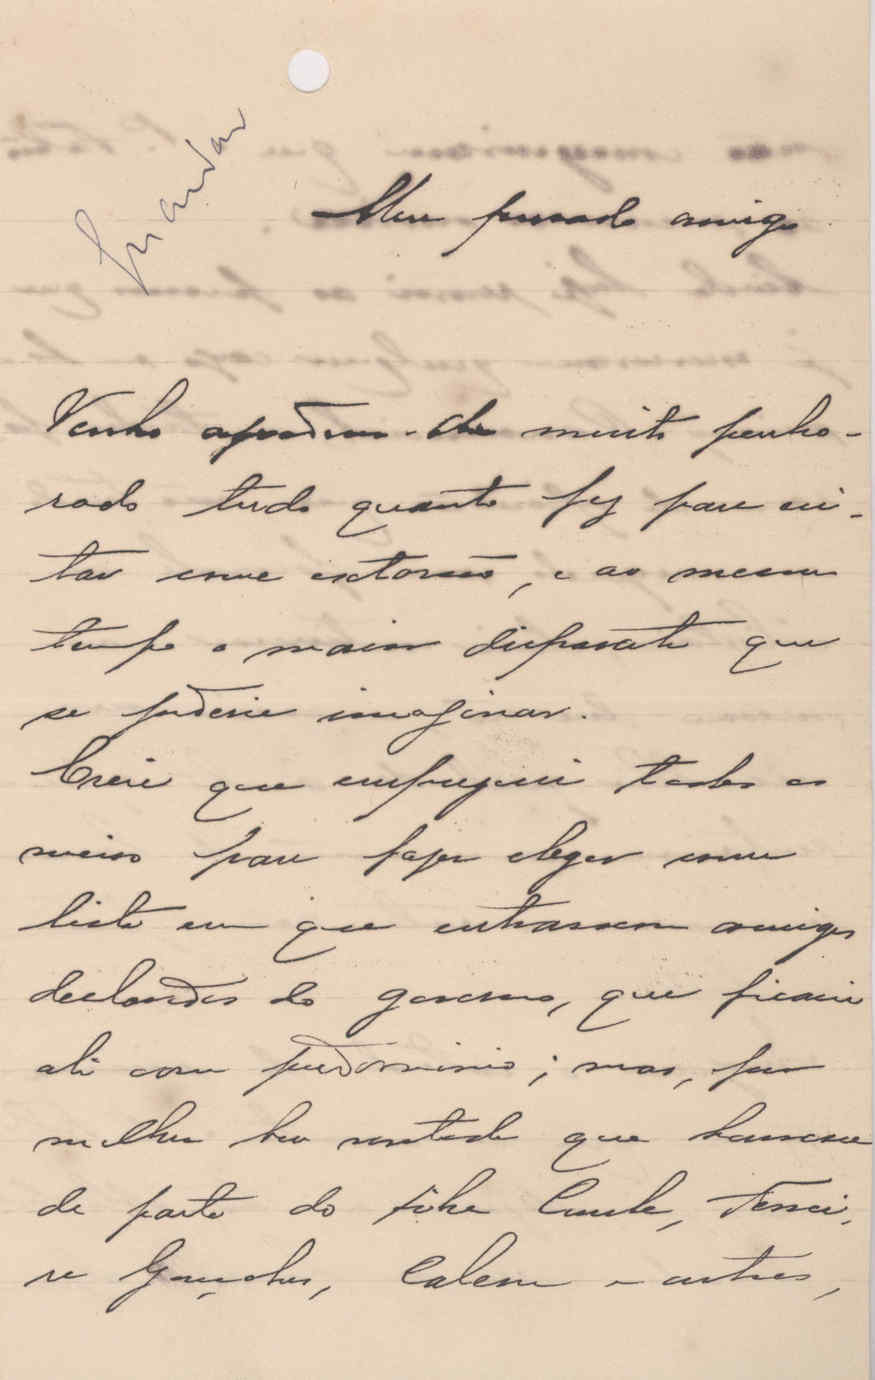 Meu prezado amigo
Venho agradecer-lhe muito penho-
rado tudo quanto fez para evi-
tar uma extorsão, e ao mesmo
tempo o maior disparate que
se poderia imaginar.
Creia que empreguei todos os
meios para fazer eleger uma
lista em que entrassem amigos
declarados do governo, que ficaria
ali com predominio; mas, por
melhor boa vontade que houvesse
de parte do Cunha, Ferrei-
ra Gonçalves, Calem e outros,